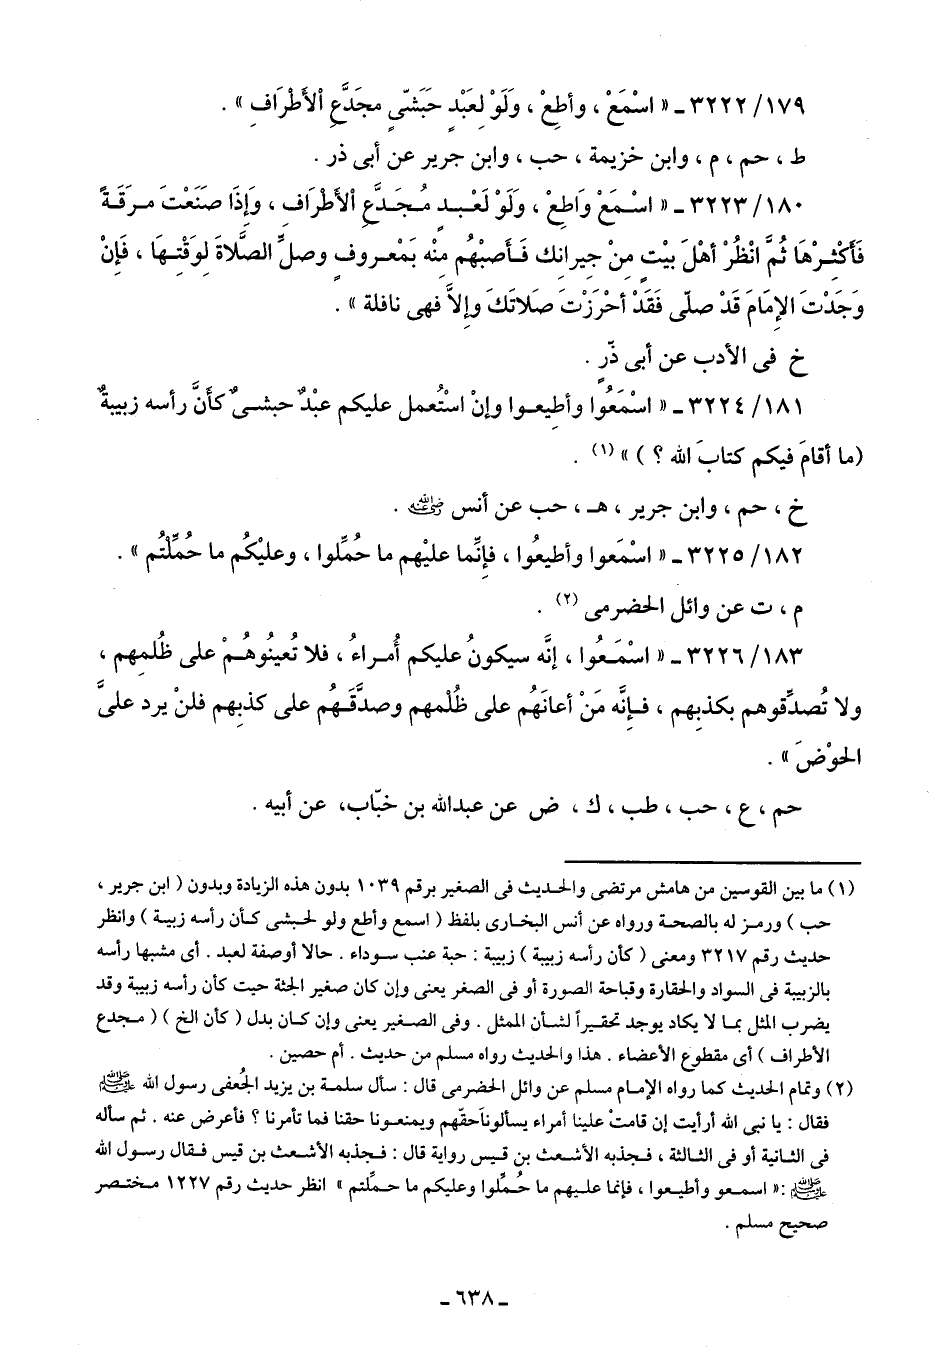 ٣٢٢٢/١٧٩ ـ « اسْمَعْ ، وأطِعْ ، وَلَوْ لِعَبْدٍ حَبَشّىٍ مجَدَّعِ الأَطْرَافِ » .
ط ، حم ، م ، وابن خزيمة ، حب ، وابن جرير عن أبى ذر .
٣٢٢٣/١٨٠ ـ « اسْمَعْ وَاطِعْ ، ولَوْ لَعْبدٍ مُجَدَّعِ الأَطْرَافِ ، وَإِذَا صَنَعْتَ مرقَةً
فَأَكْثِرْهَا ثُمَّ انْظُرْ أهْلَ بَيْتٍ مِنْ جِيرانِك فَأَصِبْهُم مِنْه بَمْعروفٍ وصلِّ الصَّلاةَ لِوَقْتِهَا ، فَإِنْ
وَجَدْتَ الإِمَامَ قَدْ صلّى فَقَدْ أحْرَزْتَ صَلاتَكَ وإلاَّ فهى نافلة » .
خ فى الأدب عن أبى ذّرٍ .
٣٢٢٤/١٨١ ـ « اسْمَعُوا وأطِيعوا وإنْ اسْتُعمل عليكم عبْدٌ حبشىٌ كأَنَّ رأسه زبيبةٌ
(ما أقامَ فيكم كتابَ الله ؟ ) » (١) .
خ ، حم ، وابن جرير ، هـ ، حب عن أنس رضي الله عنه .
٣٢٢٥/١٨٢ ـ « اسْمَعوا وأطيعُوا ، فإنَّما عليْهم ما حُمِّلوا ، وعليْكُم ما حُمِّلْتُم » .
م ، ت عن وائل الحضرمى (٢) .
٣٢٢٦/١٨٣ ـ « اسْمَعُوا ، إنَّه سيكونُ عليكم أُمراءُ ، فلا تُعينُوهُمْ على ظُلمِهم ،
ولا تُصدِّقوهم بكذبِهم ، فإنَّه مَنْ أعانَهُم على ظُلْمهم وصدَّقَهُم على كذبِهم فلنْ يرد علىَّ
الحوْضَ » .
حم ، ع ، حب ، طب ، ك ، ض عن عبدالله بن خبّاب، عن أبيه .
(١) ما بين القوسين من هامش مرتضى والحديث فى الصغير برقم ١٠٣٩ بدون هذه الزيادة وبدون ( ابن جرير ،
حب ) ورمز له بالصحة ورواه عن أنس البخارى بلفظ ( اسمع وأطع ولو لحبشى كأن رأسه زبيبة ) وانظر
حديث رقم ٣٢١٧ ومعنى ( كأن رأسه زبيبة ) زبيبة : حبة عنب سوداء . حالا أوصفة لعبد . أى مشبها رأسه
بالزبيبة فى السواد والحقارة وقباحة الصورة أو فى الصغر يعنى وإن كان صغير الجثة حيت كأن رأسه زبيبة وقد
يضرب المثل بما لا يكاد يوجد تحقيراً لشأن الممثل . وفى الصغير يعنى وإن كان بدل ( كأن الخ ) ( مجدع
الأطراف ) أى مقطوع الأعضاء . هذا والحديث رواه مسلم من حديث . أم حصين .
(٢) وتمام الحديث كما رواه الإمام مسلم عن وائل الحضرمى قال : سأل سلمة بن يزيد الجُعفى رسول الله ﷺ
فقال : يا نبى الله أرأيت إن قامتْ علينا أمراء يسألوناَحقّهم ويمنعونا حقنا فما تأمرنا ؟ فأعرض عنه . ثم سأله
فى الثانية أو فى الثالثة ، فجذبه الأشعث بن قيس رواية قال : فجذبه الأشعث بن قيس فقال رسول الله
ﷺ :« اسمعو وأطيعوا ، فإنما عليهم ما حُمِّلوا وعليكم ما حملِّتم » انظر حديث رقم ١٢٢٧ مختصر
صحيح مسلم .
ـ ٦٣٨ ـ